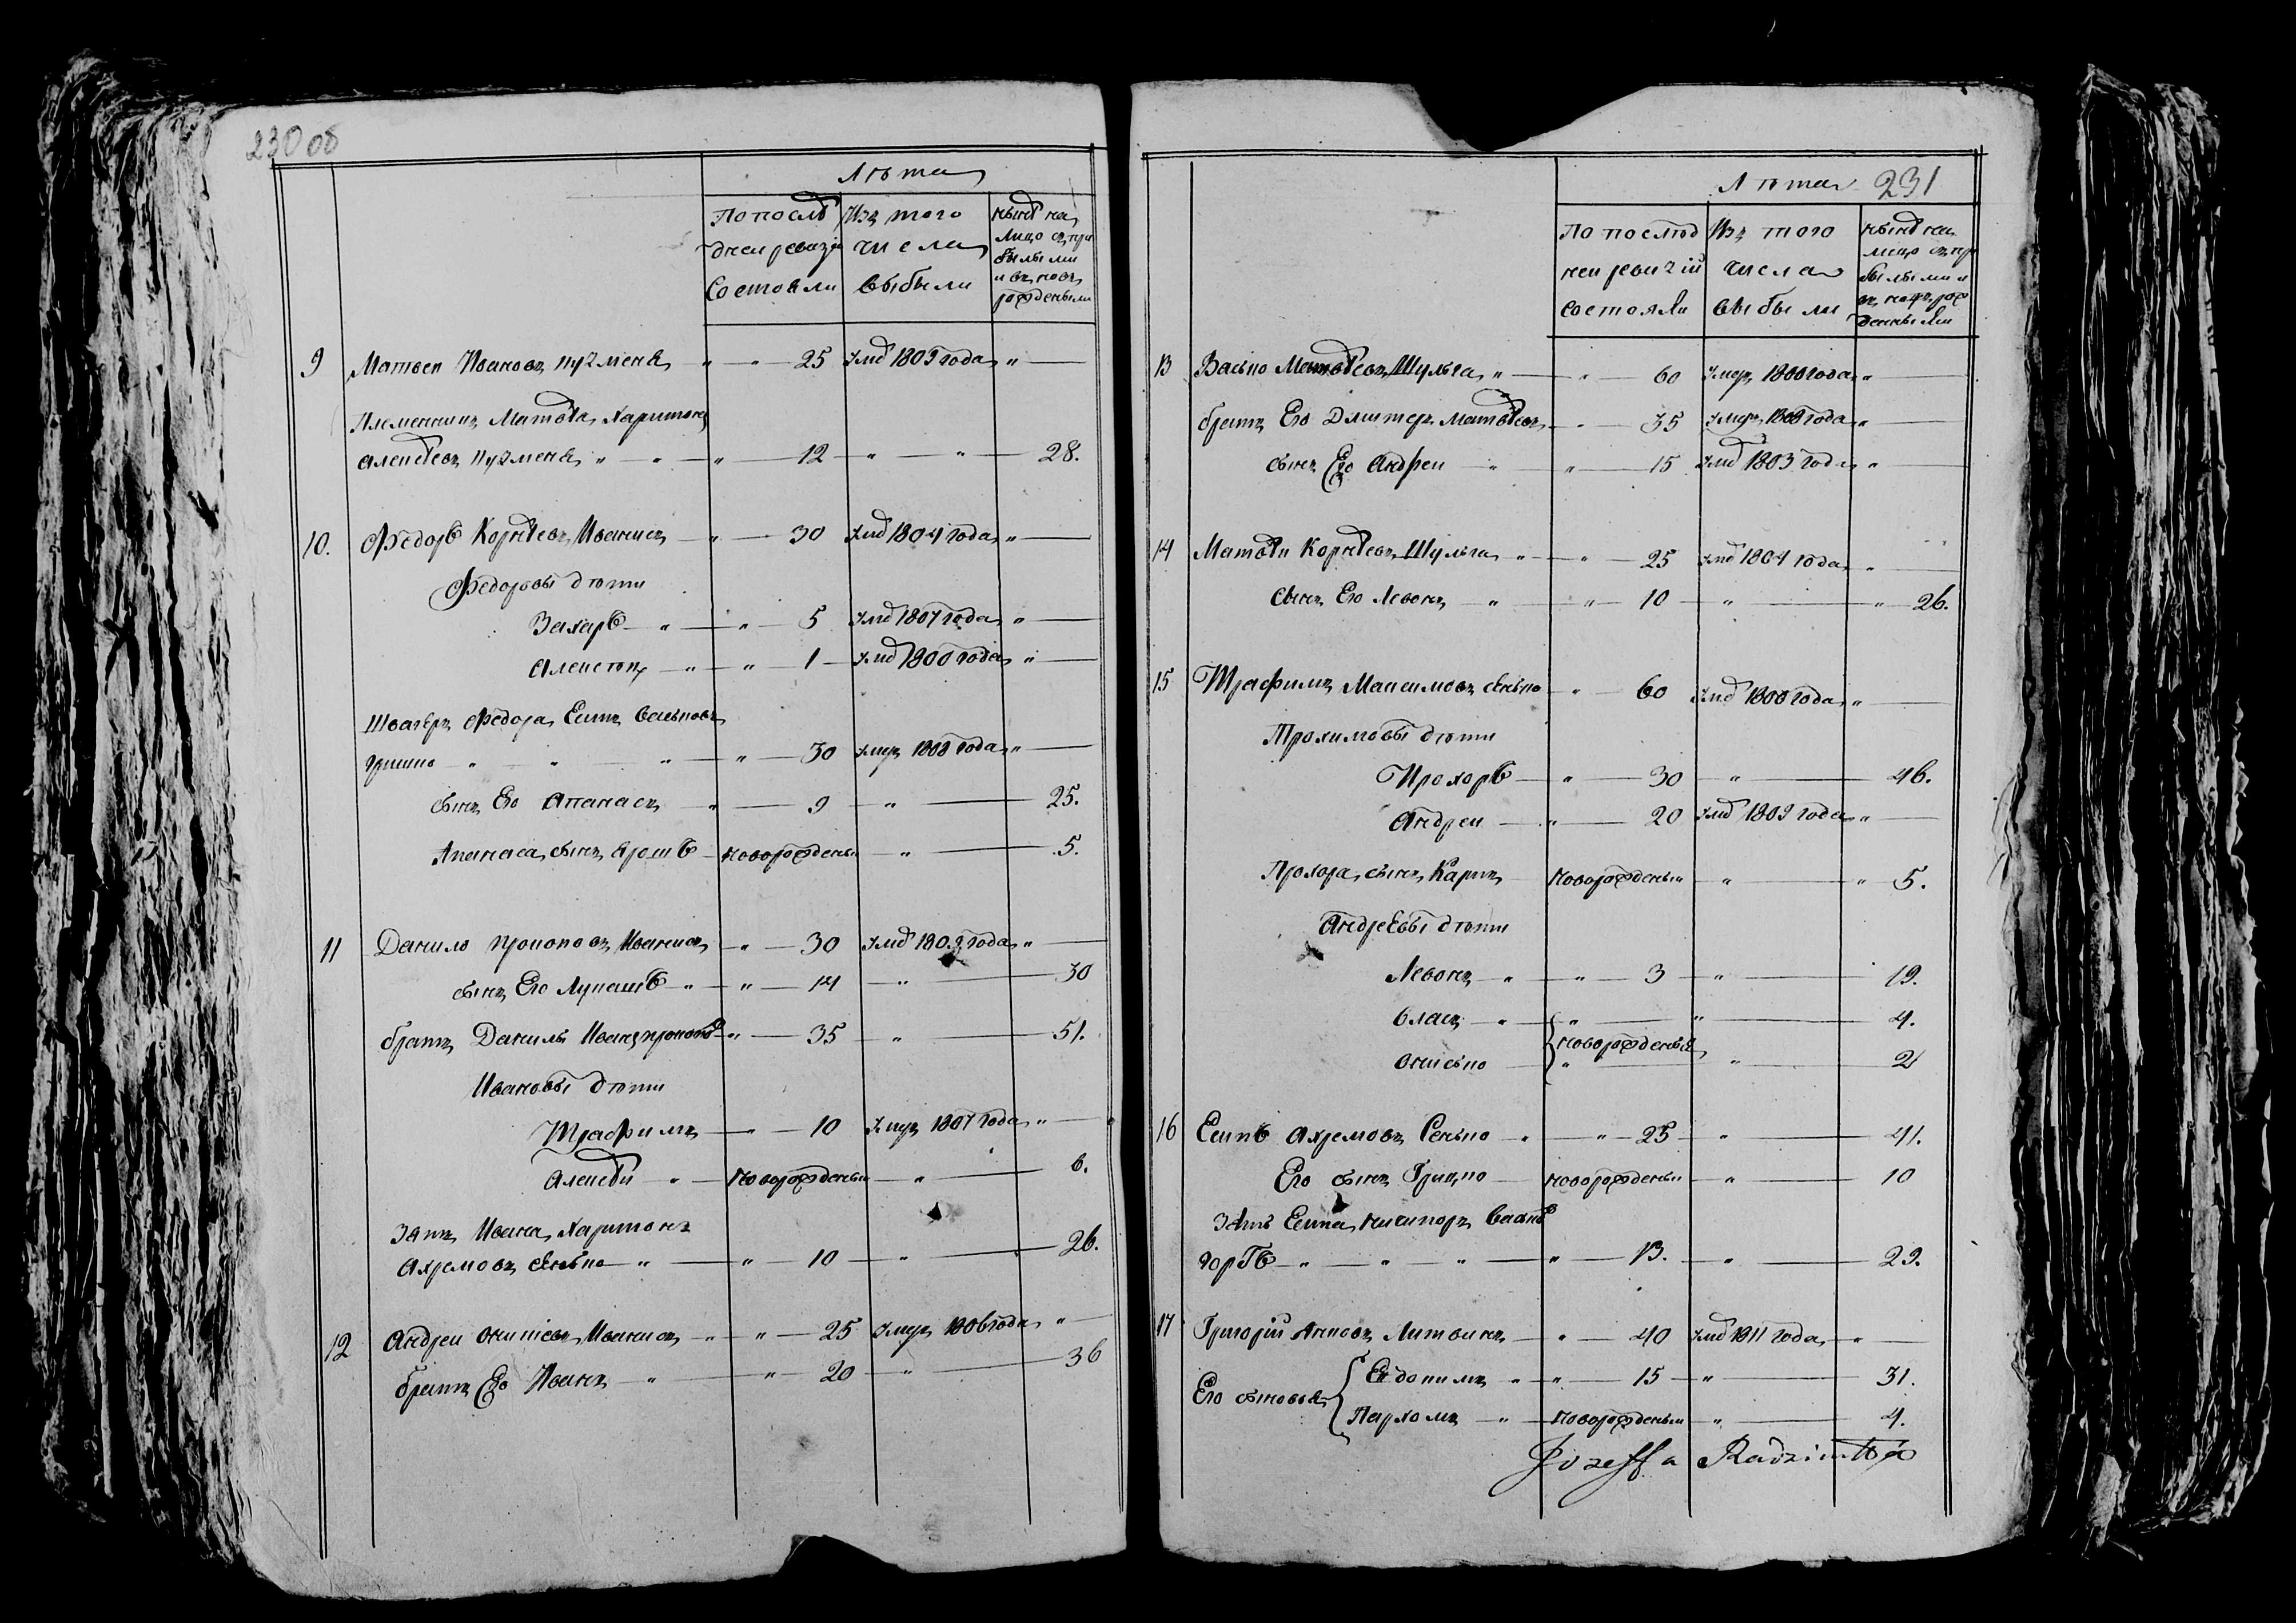 230 об
Лѣта
По послѣ Изъ того нынѣ на
дней ревизіи числа лицо съ при
состояли выбыли былыми
и въ новъ
рождеными
9 Матвеи Ивановъ пузменя " " 25 умѣ 1809 года "
Племенникъ Матвѣя, Харитонъ
Алексѣевъ пузменя " " " 12 " " 28.
10. Ѳедоръ Корнѣевъ Иванисъ " 30 умѣ 1804 года "
Ѳедоровы дѣти
Захаръ " " 5 умѣ 1807 года "
Алексѣй " " 1 умѣ 1800 года "
Швагеръ Ѳедора, Есипъ Васьковъ
Гришко " " " " 30 умеръ 1808 года "
сынъ Его Апанасъ " 9 " 25.
Апанаса, сынъ Ярошъ новорожденый " 5.
11 Данило Прокоповъ Иванисъ " 30 умѣ 1809 года "
сынъ Его Лукашъ " " 14 " 30
братъ Данилы Иванъ Прокоповъ " 35 " 51.
Ивановы дѣти
Трафимъ " 10 умеръ 1807 года "
Алексѣй " новорожденый " 6.
Зять Ивана, Харитонъ
Ахремовъ Сенько " " 10 " 26.
12 Андреи Оникіевъ Иванисъ " " 25 умеръ 1806 года "
братъ Его Иванъ " " 20 " 36
Лѣта 231
По послѣд Изъ того нынѣ на
неи ревизіи числа лицо съ при
состояли выбыли былыми и
въ новъ рож
денными
13 Васько Матвѣевъ Шульга " " 60 умеръ 1800 года "
братъ Его Дмитеръ Матвѣевъ " 35 умеръ 1808 года "
сынъ Его Андреи " " 15 умѣ 1803 года "
14 Матвѣи Корнѣевъ Шульга " " 25 умѣ 1804 года "
сынъ Его Левонъ " " 10 " " 26.
15 Трафимъ Максимовъ Сенько " 60 умѣ 1800 года "
Трохимовы дѣти
Прохоръ " 30 " 46.
Андреи " 20 умѣ 1809 года "
Прохора, сынъ, Карпъ новорожденый " " 5.
Андреевы дѣти
Левонъ " " 3 " 19.
Власъ " " " 4.
новорожденыя
Онисько " " 2
16 Есипъ Ахремовъ Сенько " " 25 " 41.
Его сынъ Грицко новорожденый " 10
Зять Есипа, Никипоръ Васил
горъ " " " " 13. " 29.
17 Григорій Янковъ Литвинъ " 40 умѣ 1811 года "
Его сыновья Евдокимъ " " 15 " 31.
Пархомъ " новорожденый " 4.
Jozeffa